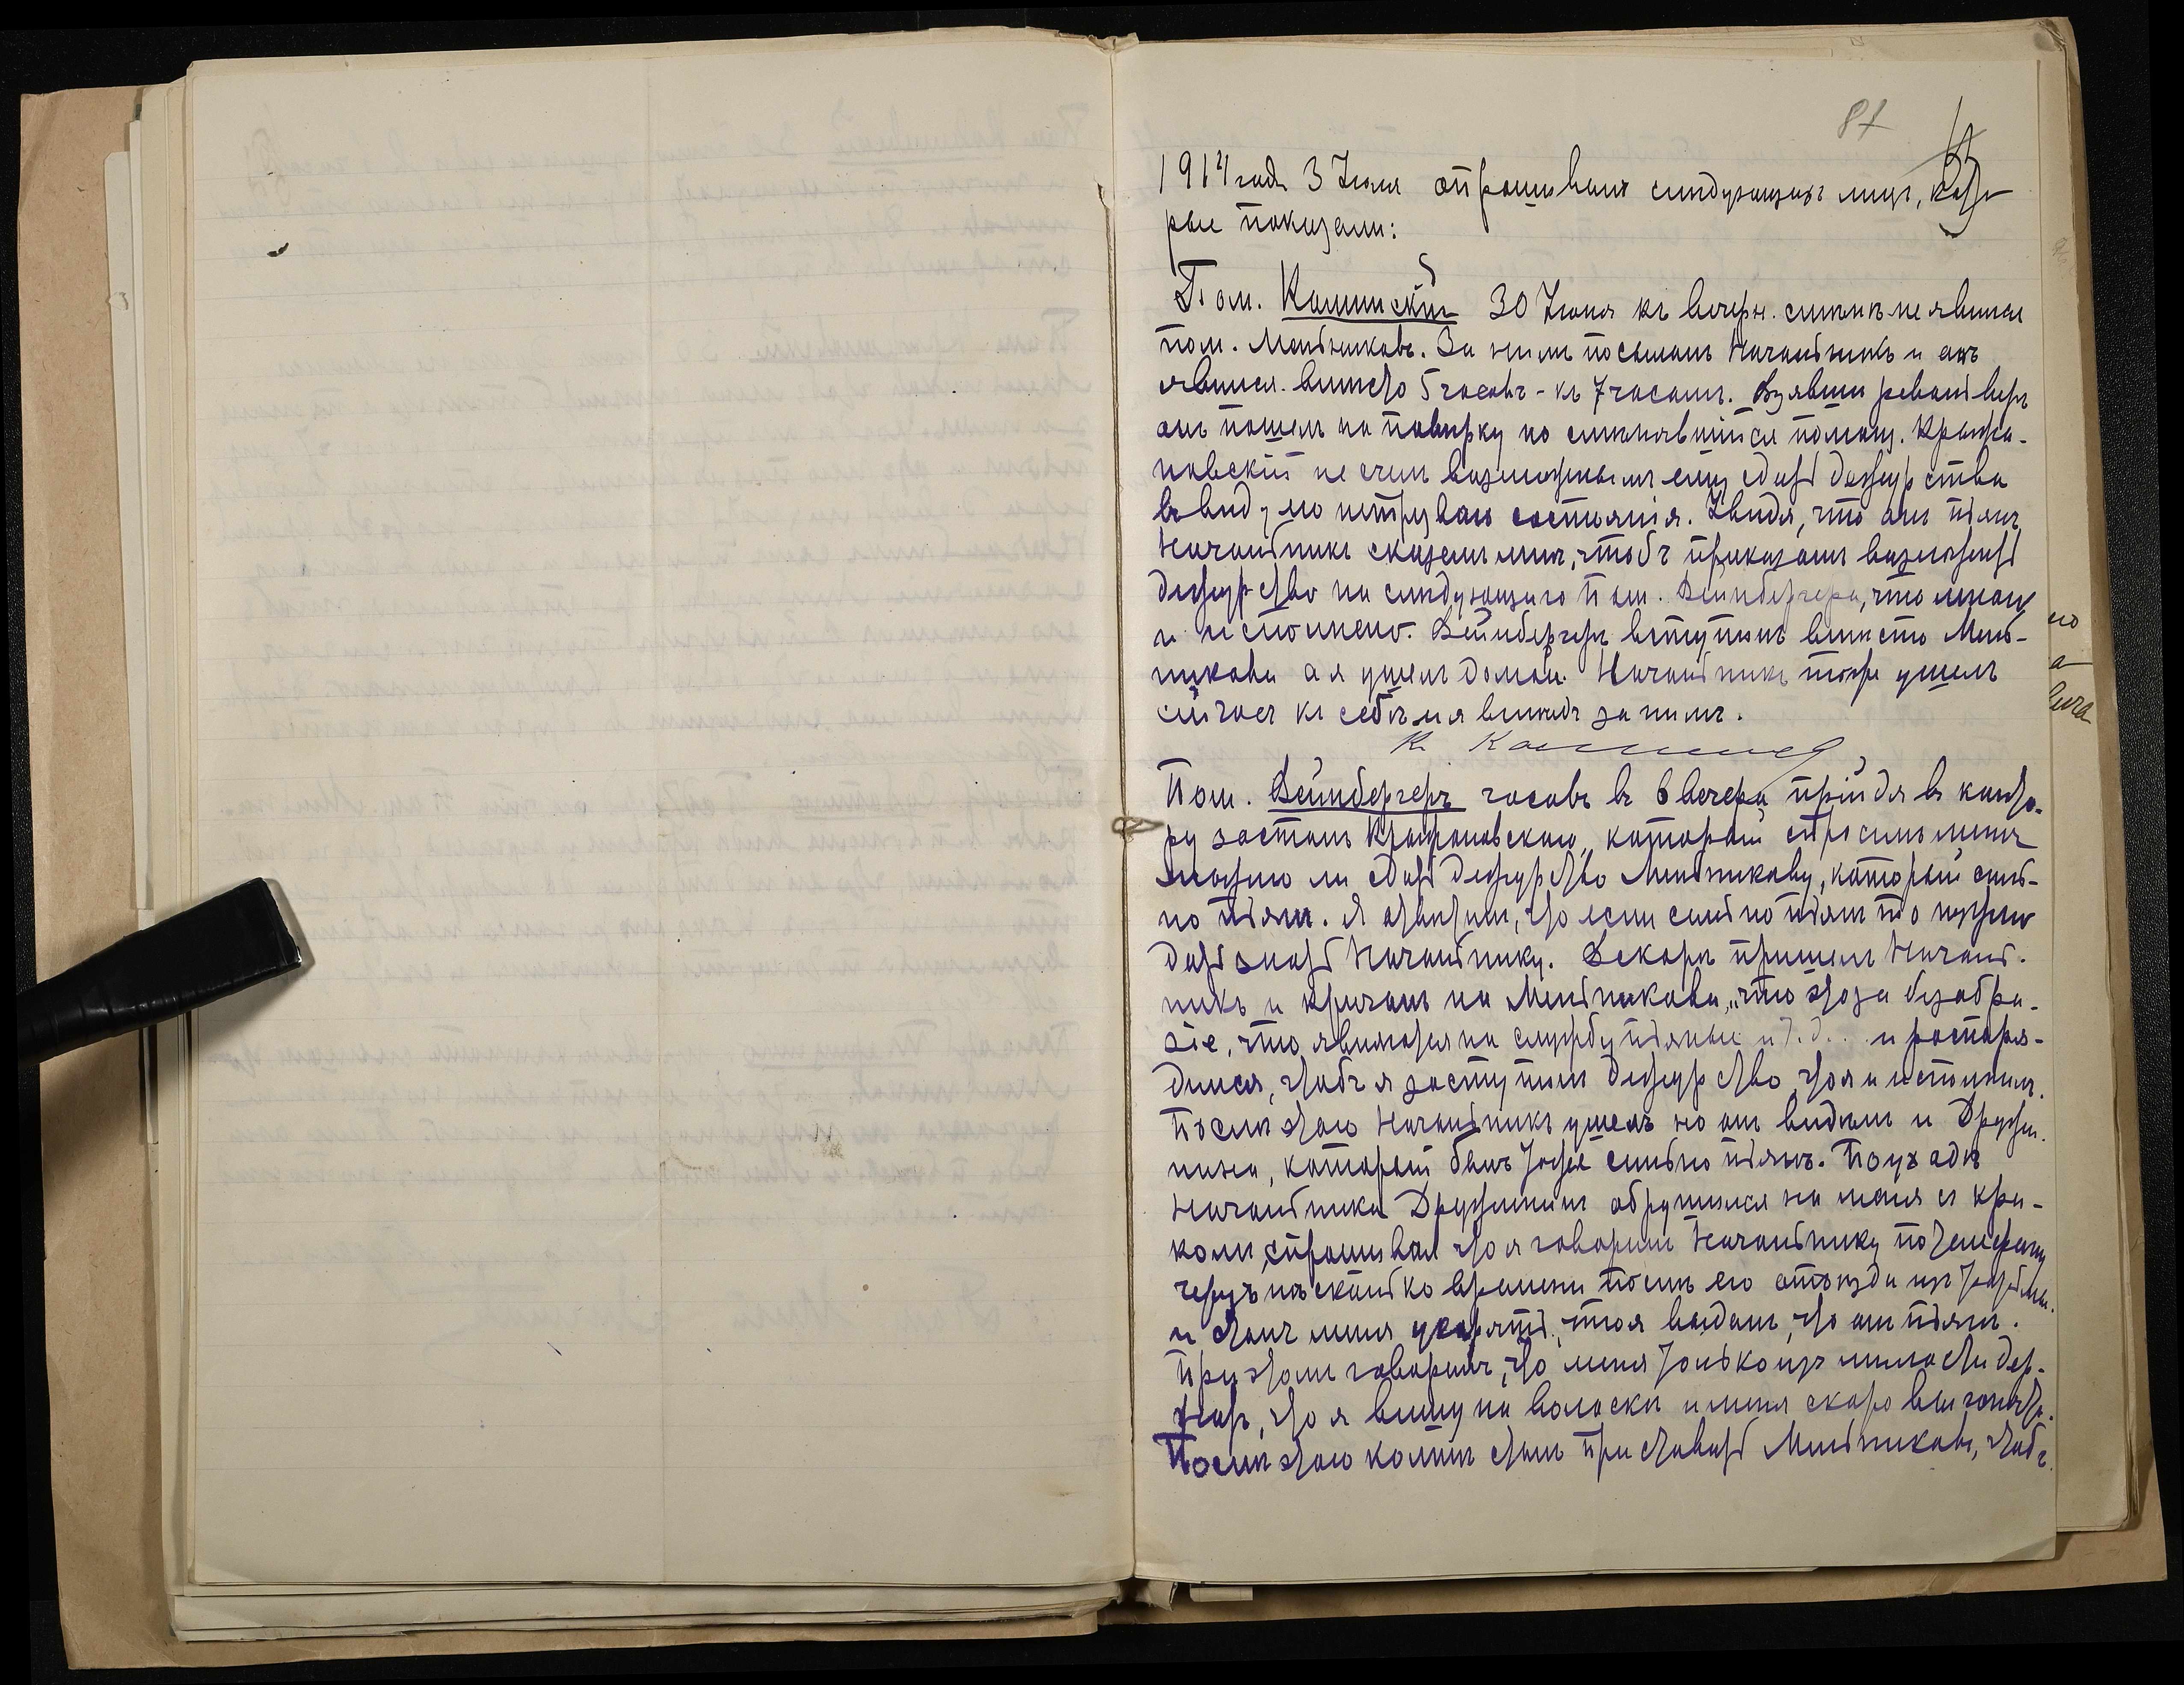 87
191 года 3 Июля опрошены слѣдующія лица, кото
рые показали:
Пом. 30 Июня къ вечерн. смѣнѣ не явился
пом. Мельниковъ. За нимъ посылалъ Начальникъ и онъ
явился вмѣсто 5 часовъ - къ 7 часамъ. Взявши револьверъ
онъ пошелъ на повѣрку но смѣнявшійся помощ. Крыжа-
новскій не счелъ возможнымъ ему сдать дежурства
въ виду его нетрезваго состоянія. Увидя, что онъ пьянъ
Начальникъ сказалъ мнѣ, чтобъ приказалъ возложить
дежурство на слѣдующаго пом. Вейнбергера, что мною
и исполнено. Вейнбергеръ вступилъ вмѣсто Мель-
никова а я ушелъ домой. Начальникъ тоже ушелъ
сейчасъ къ себѣ и я вслѣдъ за нимъ.
К.
Пом. Вейнбергеръ часовъ въ 6 вечера прійдя въ конто-
ру засталъ Крыжановскаго, который спросилъ меня
можно ли сдать дежурство Мельникову, который силь-
но пьянъ. Я отвѣтилъ, что если сильно пьянъ то нужно
дать знать Начальнику. Вскорѣ пришелъ Началь-
никъ и кричалъ на Мельникова, „что это за безобра-
зіе, что являются на службу пьяные и т.д... и распоря-
дился, чтобъ я заступилъ дежурство, что я и исполнилъ.
Послѣ этого Начальникъ ушелъ но онъ видѣлъ и Дружи-
нина, который былъ тоже сильно пьянъ. По уходѣ
Начальника Дружининъ обрушился на меня съ кри-
комъ, спрашивая что я говорилъ Начальнику по телефону
черезъ нѣсколько времени послѣ его отъѣзда изъ тюрьмы.
и сталъ меня укорять, что я выдалъ, что онъ пьянъ.
При этомъ говорилъ, что меня только изъ милости дер-
жатъ, что я вишу на волоскѣ и меня скоро выгонятъ.
Послѣ этого комнѣ сталъ приставать Мельниковъ, чтобъ
но
а
вича